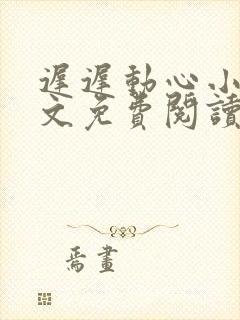 遲遲動心小
文免費閱讀
焉畫